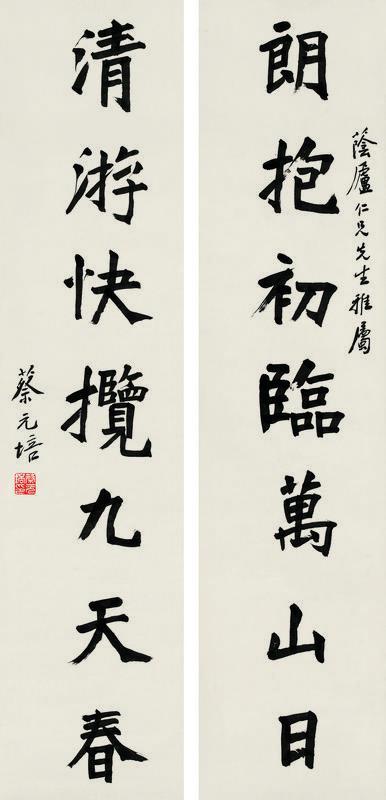 蔭廬仁兄先生雅屬
朗抱初臨萬山日
清游快攬九天春
蔡元培